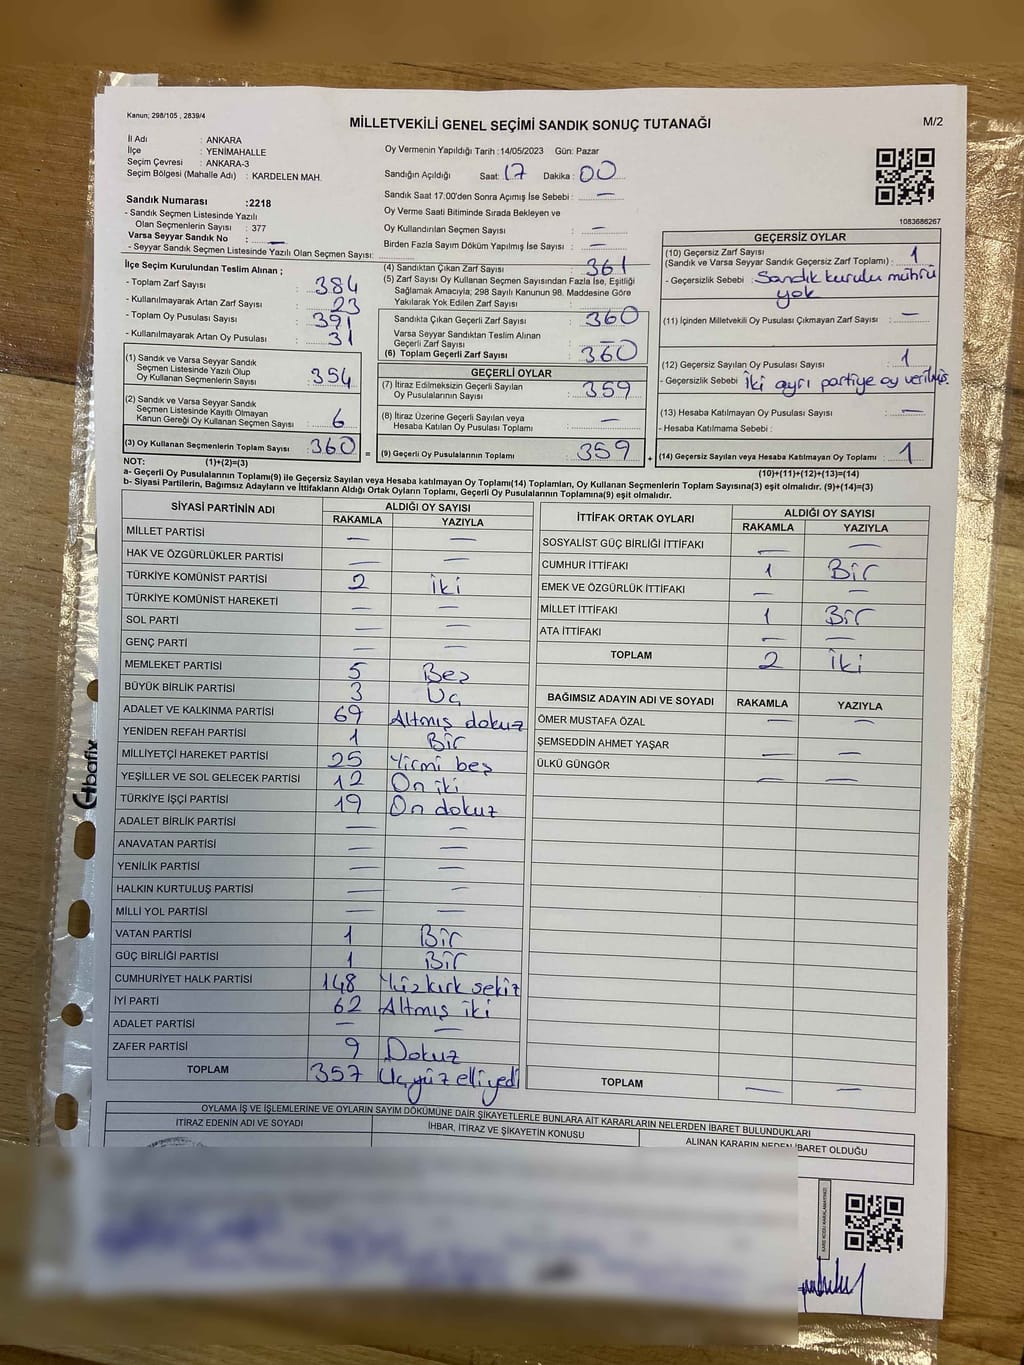 Kanun; 298/105 , 2839/4
MİLLETVEKİLİ GENEL SEÇİMİ SANDIK SONUÇ TUTANAĞI
M/2
İl Adı : ANKARA
İlçe : YENİMAHALLE
Seçim Çevresi : ANKARA-3
Seçim Bölgesi (Mahalle Adı) : KARDELEN MAH.
Sandık Numarası :2218
- Sandık Seçmen Listesinde Yazılı
Olan Seçmenlerin Sayısı : 377
Varsa Seyyar Sandık No : —
- Seyyar Sandık Seçmen Listesinde Yazılı Olan Seçmen Sayısı:
Oy Vermenin Yapıldığı Tarih :14/05/2023 Gün: Pazar
Sandığın Açıldığı Saat: 17 Dakika : 00
Sandık Saat 17:00'den Sonra Açımış İse Sebebi : —
Oy Verme Saati Bitiminde Sırada Bekleyen ve
Oy Kullandırılan Seçmen Sayısı : —
Birden Fazla Sayım Döküm Yapılmış İse Sayısı : —
1083686267
İlçe Seçim Kurulundan Teslim Alınan ;
- Toplam Zarf Sayısı : 384
- Kullanılmayarak Artan Zarf Sayısı : 23
- Toplam Oy Pusulası Sayısı : 391
- Kullanılmayarak Artan Oy Pusulası : 31
(1) Sandık ve Varsa Seyyar Sandık
Seçmen Listesinde Yazılı Olup
Oy Kullanan Seçmenlerin Sayısı : 354
(2) Sandık ve Varsa Seyyar Sandık
Seçmen Listesinde Kayıtlı Olmayan
Kanun Gereği Oy Kullanan Seçmen Sayısı : 6
(3) Oy Kullanan Seçmenlerin Toplam Sayısı : 360
(4) Sandıktan Çıkan Zarf Sayısı : 361
(5) Zarf Sayısı Oy Kullanan Seçmen Sayısından Fazla İse, Eşitliği
Sağlamak Amacıyla; 298 Sayılı Kanunun 98. Maddesine Göre
Yakılarak Yok Edilen Zarf Sayısı :
Sandıkta Çıkan Geçerli Zarf Sayısı : 360
Varsa Seyyar Sandıktan Teslim Alınan
Geçerli Zarf Sayısı : —
(6) Toplam Geçerli Zarf Sayısı : 360
GEÇERLİ OYLAR
(7) İtiraz Edilmeksizin Geçerli Sayılan
Oy Pusulalarının Sayısı : 359
(8) İtiraz Üzerine Geçerli Sayılan veya
Hesaba Katılan Oy Pusulası Toplamı : —
= (9) Geçerli Oy Pusulalarının Toplamı : 359
GEÇERSİZ OYLAR
(10) Geçersiz Zarf Sayısı
(Sandık ve Varsa Seyyar Sandık Geçersiz Zarf Toplamı) : 1
- Geçersizlik Sebebi : Sandık kurulu mührü
yok
(11) İçinden Milletvekili Oy Pusulası Çıkmayan Zarf Sayısı : —
(12) Geçersiz Sayılan Oy Pusulası Sayısı : 1
- Geçersizlik Sebebi : İki ayrı partiye oy verilmiş.
(13) Hesaba Katılmayan Oy Pusulası Sayısı : —
- Hesaba Katılmama Sebebi :
+ (14) Geçersiz Sayılan veya Hesaba Katılmayan Oy Toplamı : 1
NOT: (1)+(2)=(3)
(10)+(11)+(12)+(13)=(14)
a- Geçerli Oy Pusulasının Toplamı(9) ile Geçersiz Sayılan veya Hesaba katılmayan Oy Toplamı(14) Toplamları, Oy Kullanan Seçmenlerin Toplam Sayısına(3) eşit olmalıdır. (9)+(14)=(3)
b- Siyasi Partilerin, Bağımsız Adayların ve İttifakların Aldığı Ortak Oyların Toplamı, Geçerli Oy Pusulalarının Toplamına(9) eşit olmalıdır.
SİYASİ PARTİNİN ADI ALDIĞI OY SAYISI
RAKAMLA YAZIYLA
MİLLET PARTİSİ — —
HAK VE ÖZGÜRLÜKLER PARTİSİ — —
TÜRKİYE KOMÜNİST PARTİSİ 2 iki
TÜRKİYE KOMÜNİST HAREKETİ — —
SOL PARTİ — —
GENÇ PARTİ — —
MEMLEKET PARTİSİ 5 Beş
BÜYÜK BİRLİK PARTİSİ 3 Üç
ADALET VE KALKINMA PARTİSİ 69 Altmış dokuz
YENİDEN REFAH PARTİSİ 1 Bir
MİLLİYETÇİ HAREKET PARTİSİ 25 Yirmi beş
YEŞİLLER VE SOL GELECEK PARTİSİ 12 On iki
TÜRKİYE İŞÇİ PARTİSİ 19 On dokuz
ADALET BİRLİK PARTİSİ — —
ANAVATAN PARTİSİ — —
YENİLİK PARTİSİ — —
HALKIN KURTULUŞ PARTİSİ — —
MİLLİ YOL PARTİSİ — —
VATAN PARTİSİ 1 Bir
GÜÇ BİRLİĞİ PARTİSİ 1 Bir
CUMHURİYET HALK PARTİSİ 148 Yüzkırk sekiz
İYİ PARTİ 62 Altmış iki
ADALET PARTİSİ — —
ZAFER PARTİSİ 9 Dokuz
TOPLAM 357 Üçyüz elli yedi
İTTİFAK ORTAK OYLARI ALDIĞI OY SAYISI
RAKAMLA YAZIYLA
SOSYALİST GÜÇ BİRLİĞİ İTTİFAKI — —
CUMHUR İTTİFAKI 1 Bir
EMEK VE ÖZGÜRLÜK İTTİFAKI — —
MİLLET İTTİFAKI 1 Bir
ATA İTTİFAKI — —
TOPLAM 2 iki
BAĞIMSIZ ADAYIN ADI VE SOYADI RAKAMLA YAZIYLA
ÖMER MUSTAFA ÖZAL — —
ŞEMSEDDİN AHMET YAŞAR — —
ÜLKÜ GÜNGÖR — —
TOPLAM — —
OYLAMA İŞ VE İŞLEMLERİNE VE OYLARIN SAYIM DÖKÜMÜNE DAİR ŞİKAYETLERLE BUNLARA AİT KARARLARIN NELERDEN İBARET BULUNDUKLARI
İTİRAZ EDENİN ADI VE SOYADI İHBAR, İTİRAZ VE ŞİKAYETİN KONUSU ALINAN KARARIN NEDEN İBARET OLDUĞU
Etbafix